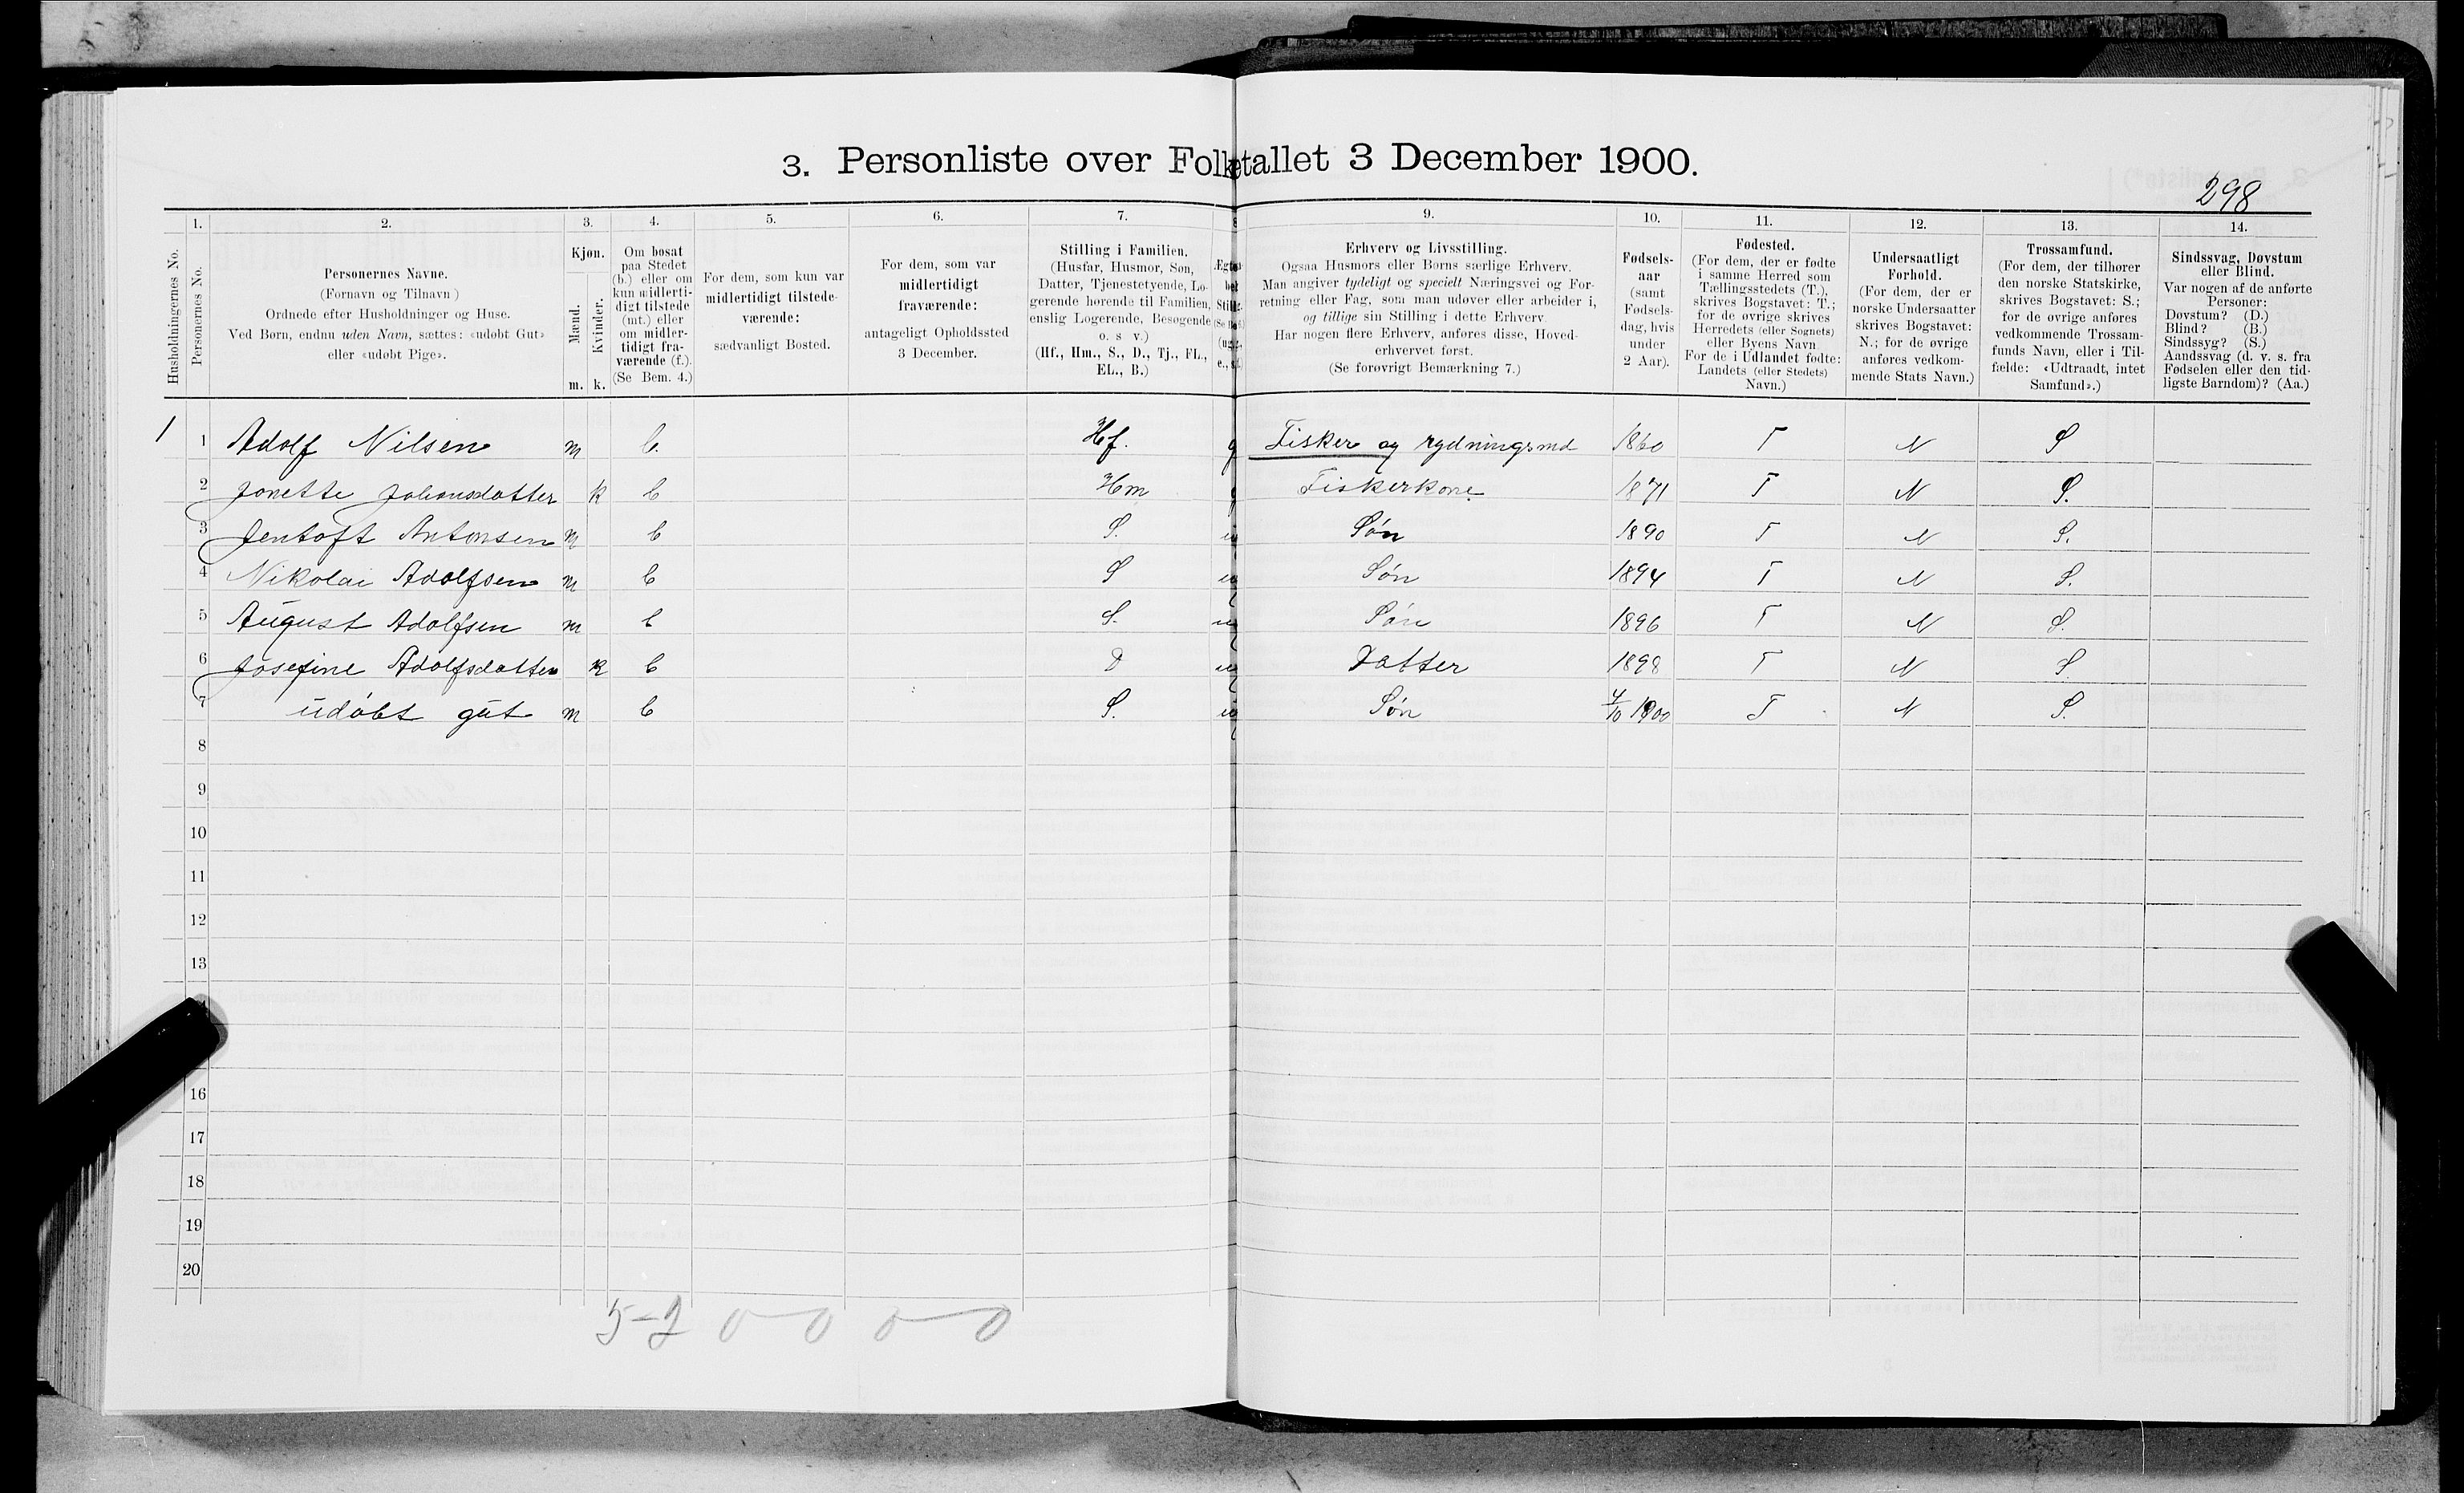 3. Personliste over Folketallet 3 December 1900.
298
1. 2. 3. 4. 5. 6. 7. 8 9. 10. 11. 12. 13. 14.
Husholdningernes No.
Personernes No.
Personernes Navne.
(Fornavn og Tilnavn)
Ordnede efter Husholdninger og Huse.
Ved Børn, endnu uden Navn, sættes: «udøbt Gut»
eller «udøbt Pige».
Kjøn.
Mænd.
Kvinder.
m. k.
Om bosat
paa Stedet
(b.) eller om
kun midlerti-
digt tilstede
(mt.) eller
om midler-
tidigt fra-
værende (f.).
(Se Bem. 4.)
For dem, som kun var
midlertidigt tilstede-
værende:
sædvanligt Bosted.
For dem, som var
midlertidigt
fraværende:
antageligt Opholdssted
3 December.
Stilling i Familien.
(Husfar, Husmor, Søn,
Datter, Tjenestetyende, Lo-
gerende hørende til Familien,
enslig Logerende, Besøgende
o. s v.)
(Hf., Hm., S., D., Tj., FL.,
EL., B.)
Erhverv og Livsstilling.
Ogsaa Husmors eller Børns særlige Erhverv.
Man angiver tydeligt og specielt Næringsvei og For-
retning eller Fag, som man udøver eller arbeider i,
og tillige sin Stilling i dette Erhverv.
Har nogen flere Erhverv, anføres disse, Hoved-
erhvervet først.
(Se forøvrigt Bemærkning 7.)
Fødsels-
aar
(samt
Fødsels-
dag, hvis
under
2 Aar).
Fødested.
(For dem, der er fødte
i samme Herred som
Tællingsstedets (T.),
skrives Bogstavet: T.;
for de øvrige skrives
Herredets (eller Sognets)
eller Byens Navn
For de i Udlandet fødte:
Landets (eller Stedets)
Navn.)
Undersaatligt
Forhold.
(For dem, der er
norske Undersaatter
skrives Bogstavet:
N.; for de øvrige
anføres vedkom-
mende Stats Navn.)
Trossamfund.
(For dem, der tilhører
den norske Statskirke,
skrives Bogstavet: S.;
for de øvrige anføres
vedkommende Trossam-
funds Navn, eller i Til-
fælde: «Udtraadt, intet
Samfund».)
Sindssvag, Døvstum
eller Blind.
Var nogen af de anførte
Personer:
Døvstum? (D.)
Blind? (B.)
Sindssyg? (S.)
Aandssvag (d. v. s. fra
Fødselen eller den tid-
ligste Barndom)? (Aa.)
1 1 Adolf Nilsen m b. Hf. g Fisker og rydningsmd 1860 T N S
2 Jonette Johansdatter k b Hm g Fiskerkone 1871 T N S.
3 Jentoft Antonsen m b S. Søn 1890 T N S.
4 Nikolai Adolfsen m b S Søn 1894 T N S.
5 August Adolfsen m b S. Søn 1896 T N S.
6 Josefine Adolfsdatter k b D Datter 1898 T N S.
7 udøbt gut m b S. Søn 4/10 1900 T N S.
8
9
10
11
12
13
16
17
18
19
20
5-2 0-0 0-0